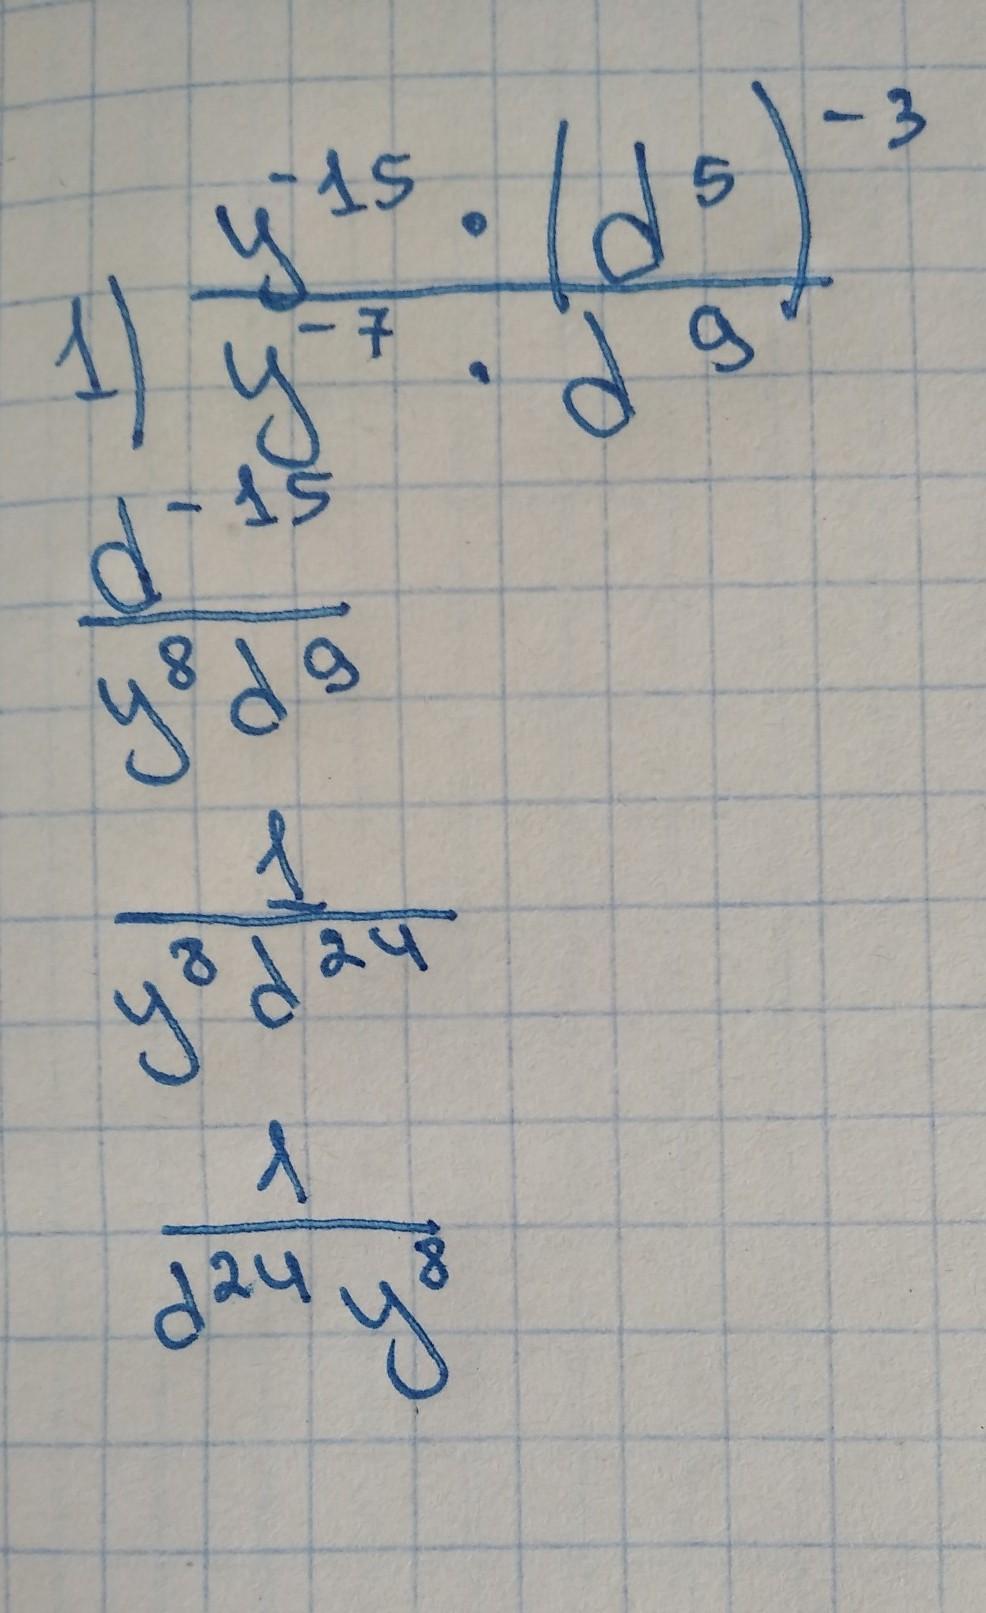 1) y⁻¹⁵ · (d⁵)⁻³
y⁻⁷ · d⁹
d⁻¹⁵
y⁸ d⁹
1
y⁸ d²⁴
1
d²⁴ y⁸